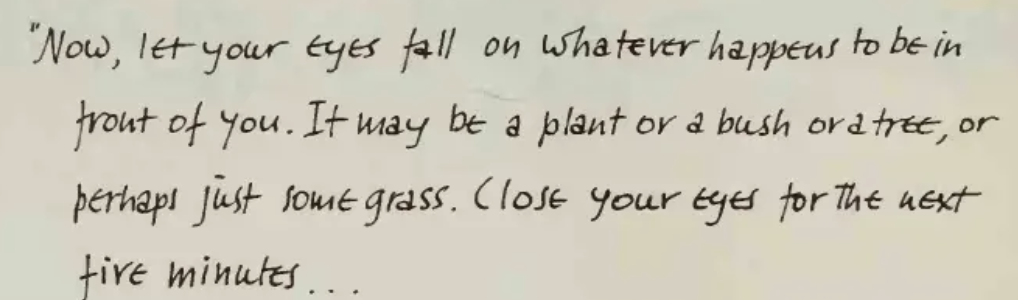 "Now, let your eyes fall on whatever happens to be in
front of you. It may be a plant or a bush or a tree, or
perhaps just some grass. Close your eyes for the next
five minutes...